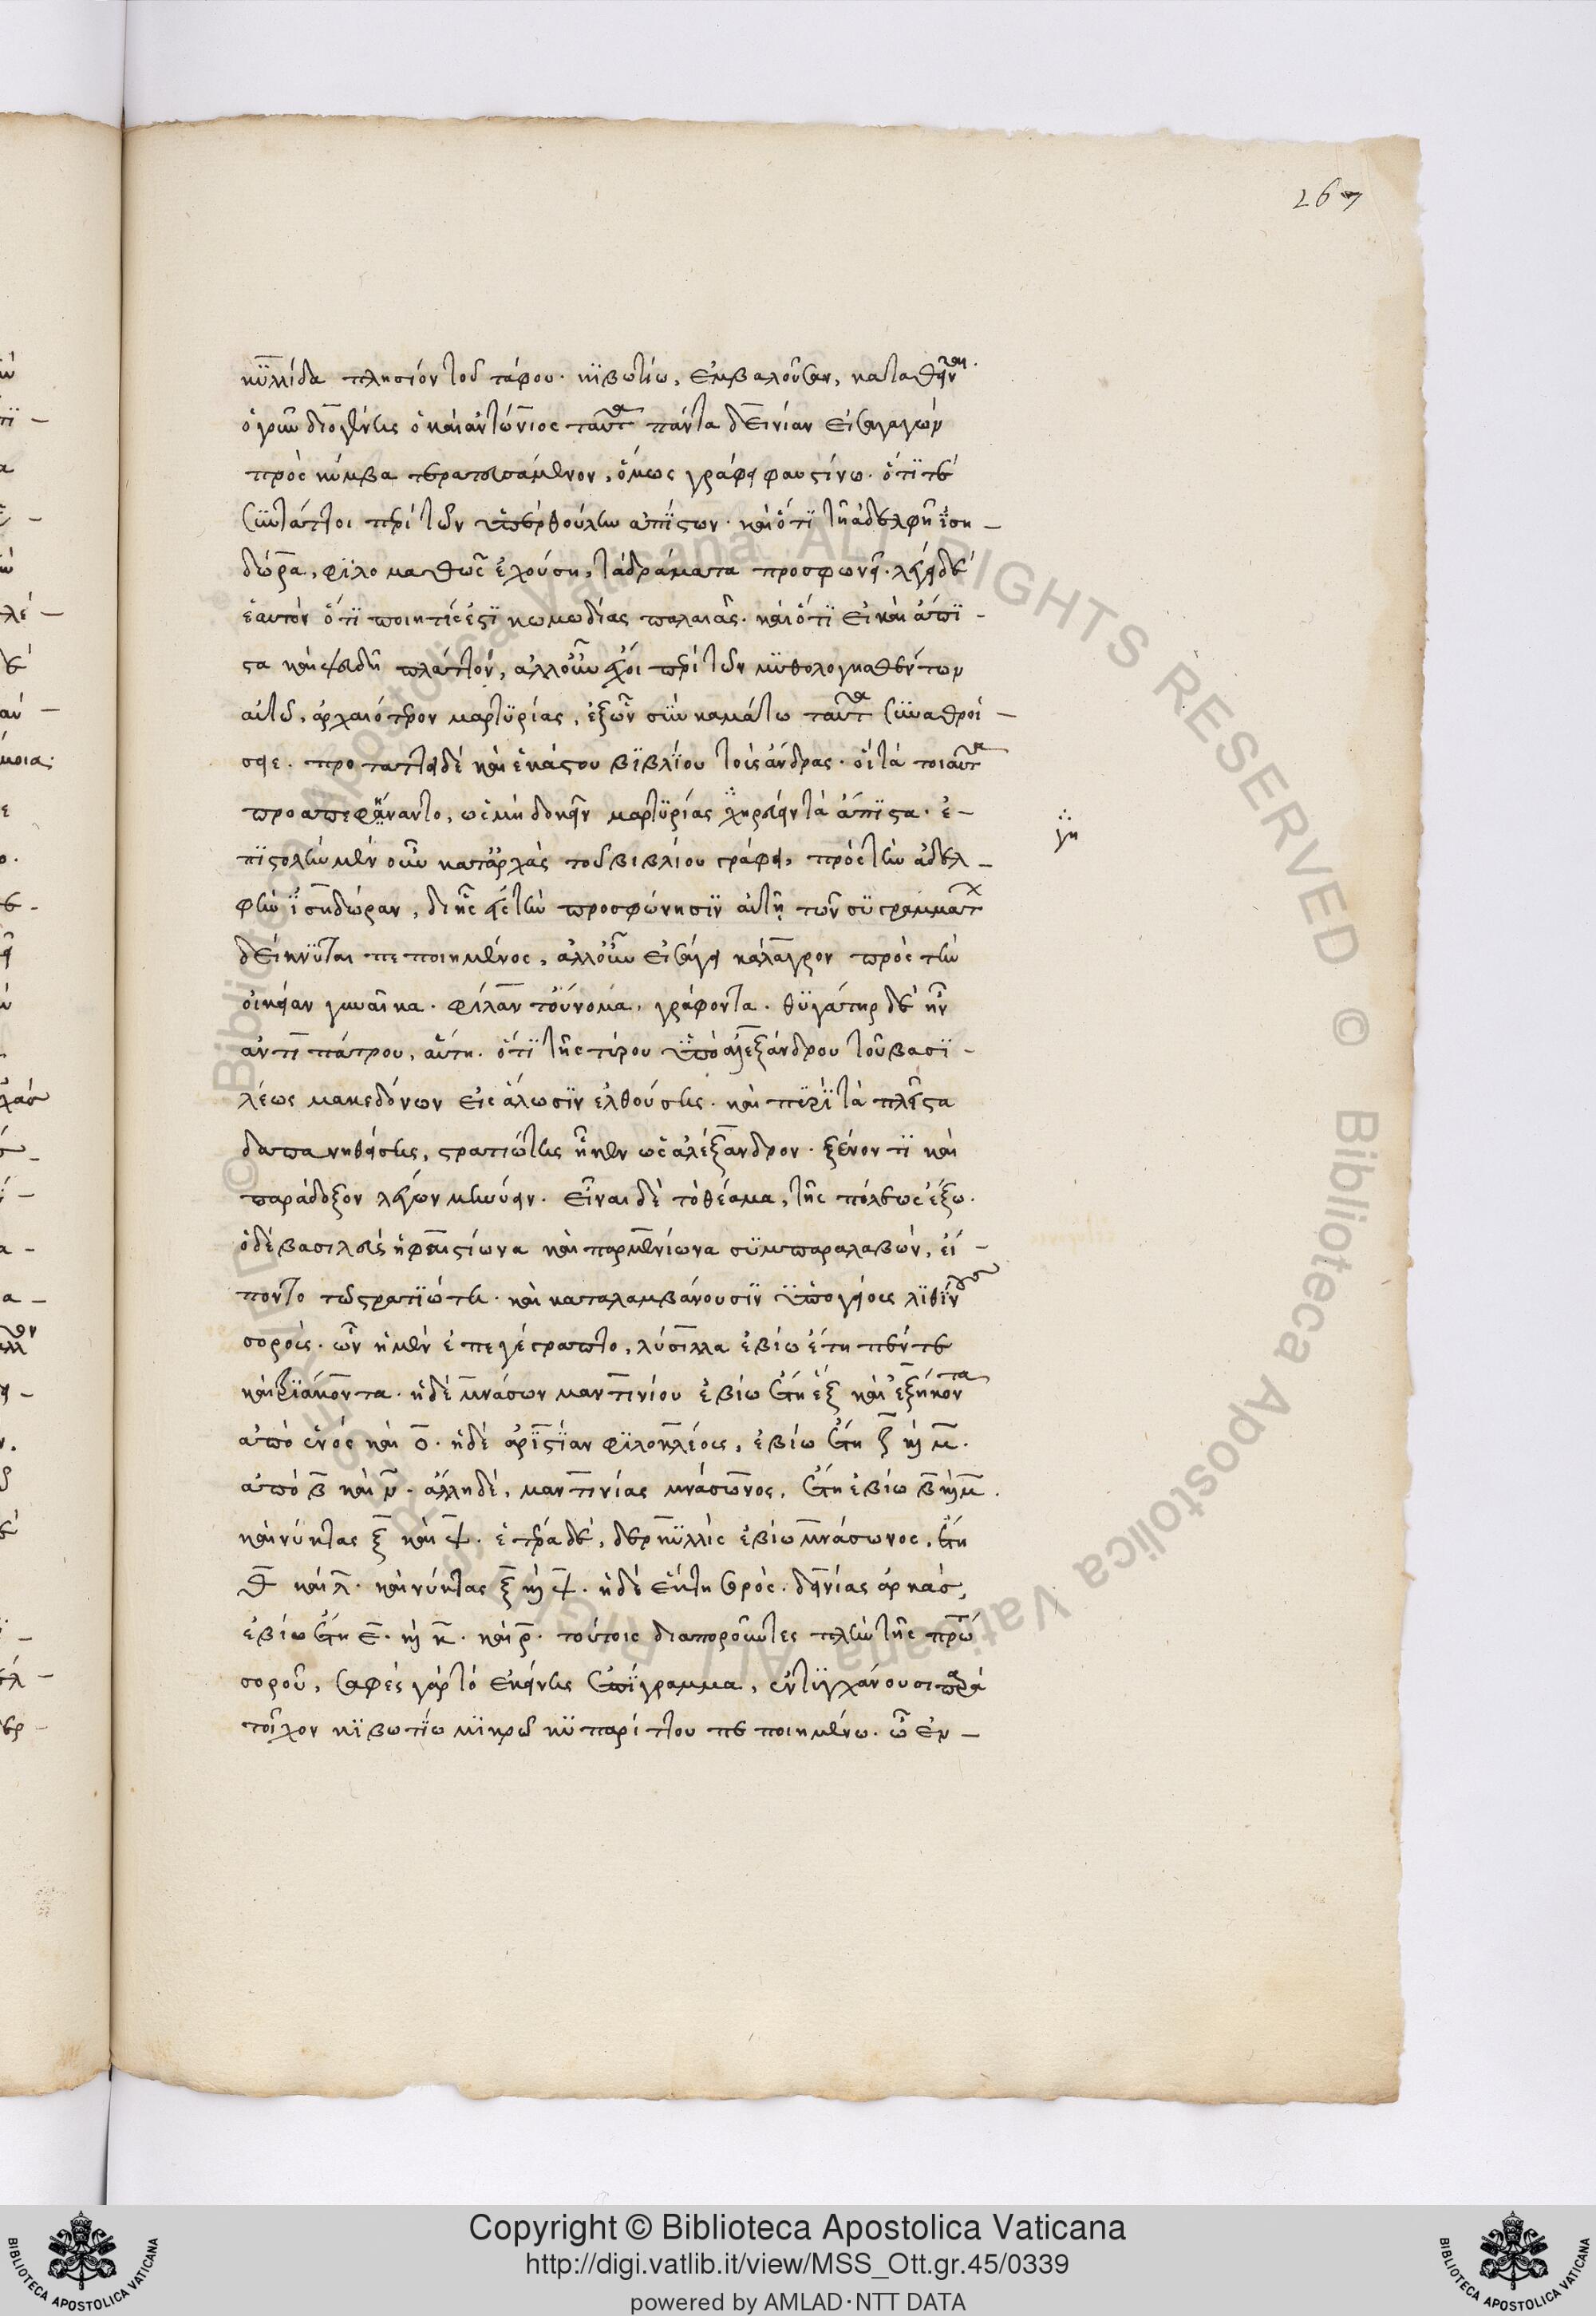 267
κυμβίδα πλησίον τοῦ τάφου. κϊβωτίω, ἐμβαλοῦσαν, καταθεῖναι.
ὁ γοῦν διογένης ὁ καὶ ἀντώνιος ταῦτα πάντα δεινίαν εἰσαγαγὼν
πρὸς κύμβα τερατευσάμενον, ὅμως γράφει φαυστίνω. ὅτϊ τὲ
συντάττοι περὶ τῶν ὑπὲρ θούλην ἀπίστων. καὶ ὅτϊ τῆ ἀδελφῆ ἰση–
δώρα, φιλομαθῶς ἐχούση, τὰ δράματα προσφωνεῖ. λέγει δὲ
ἑαυτὸν ὅτϊ ποιητίς ἐστϊ κωμωδίας παλαιᾶς. καὶ ὅτϊ εἰ καὶ ἄπϊ–
στα καὶ ψευδῆ πλάττοι, ἀλλοὖν ἔχοι περὶ τῶν μυθολογηθέντων
αὐτῶ, ἀρχαιότερον μαρτυρίας, ἐξ ὧν σὺν καμάτω ταῦτα συναθροί–
σαε. προτάττει δὲ καὶ ἑκάστου βϊβλίου τοὺς ἄνδρας. οἳ τὰ τοιαῦτα
προαπεφήναντο, ὡς μὴ δοκεῖν μαρτυρίας χηρεύειν τὰ ἄπϊστα. ἐ–
γη
πιστολὴν μὲν οὖν κατ᾽ ἀρχὰς τοῦ βιβλίου γράφει, πρὸς τὴν ἀδελ–
φὴν ἰσηδώραν, δι᾽ ἧς εἰς τὴν προσφώνησϊν αὐτῆ τῶν συγραμμάτ
δείκνυται πεποιημένος, ἀλλοὖν εἰσάγει κάλαγρον πρὸς τὴν
οἰκείαν γυναῖκα. φίλαν τοὔνομα, γράφοντα. θυγάτηρ δὲ ἦν
ἀντιπάτρου, αὕτη. ὅτϊ τῆς τύρου ὑπὸ ἀλεξάνδρου τοῦ βασϊ–
λέως μακεδόνων εἰς ἅλωσϊν ἐλθούσης. καὶ πϋρὶ τὰ πλεῖστα
δαπανηθείσης, στρατιώτης ἧκεν ὡς ἀλέξανδρον. ξένον τϊ καὶ
παράδοξον λέγων μηνύειν. εἶναι δὲ τὸ θέαμα, τῆς πόλεως ἔξω.
ὁ δὲ βασιλεὺς ἡφαιστίωνα καὶ παρμενίωνα συμπαραλαβὼν, εἵ–
ποντο τῶ στρατϊώτη. καὶ καταλαμβάνουσιν ὑπογείους λϊθίνους
σοροὺς. ὧν ἡ μὲν ἐπεγέγραπτο, λύσιλλα ἐβίω ἔτη πέντε
καὶ τριάκοντα. ἡ δὲ μνάσων μαντινίου ἐβίω ἔτη ἓξ καὶ ἑξήκοντα
ἀπὸ ἑνὸς καὶ ο. ἡ δὲ ἀρϊστίαν φιλοκλέους, ἐβίω ἔτη ζ κ μ.
ἀπὸ β καὶ ν. ἄλλη δὲ, μαντινίας μνάσωνος, ἔτη ἐβίω β κ μ.
καὶ νύκτας ξ καὶ ψ. ἑτέρα δὲ, δερκυλλὶς ἐβίω μνάσωνος, ἔτη
θ καὶ λ. καὶ νύκτας ξ κ ψ. ἡ δὲ ἕκτη σορὸς. δεινίας ἀρκὰς,
ἐβίω ἔτη ε. κ κ. καὶ ρ. τούτοις διαποροῦντες πλὴν τῆς πρώ
σοροῦ, σαφὲς γὰρ τὸ ἐκείνης ἐπίγραμμα, ἐντυγχάνουσι παρὰ
τοῖχον κϊβωτίω μϊκρῶ κυπαρίττου πεποιημένω. ὧ ἐν–
Copyright © Biblioteca Apostolica Vaticana
http://digi.vatlib.it/view/MSS_Ott.gr.45/0339
powered by AMLAD·NTT DATA